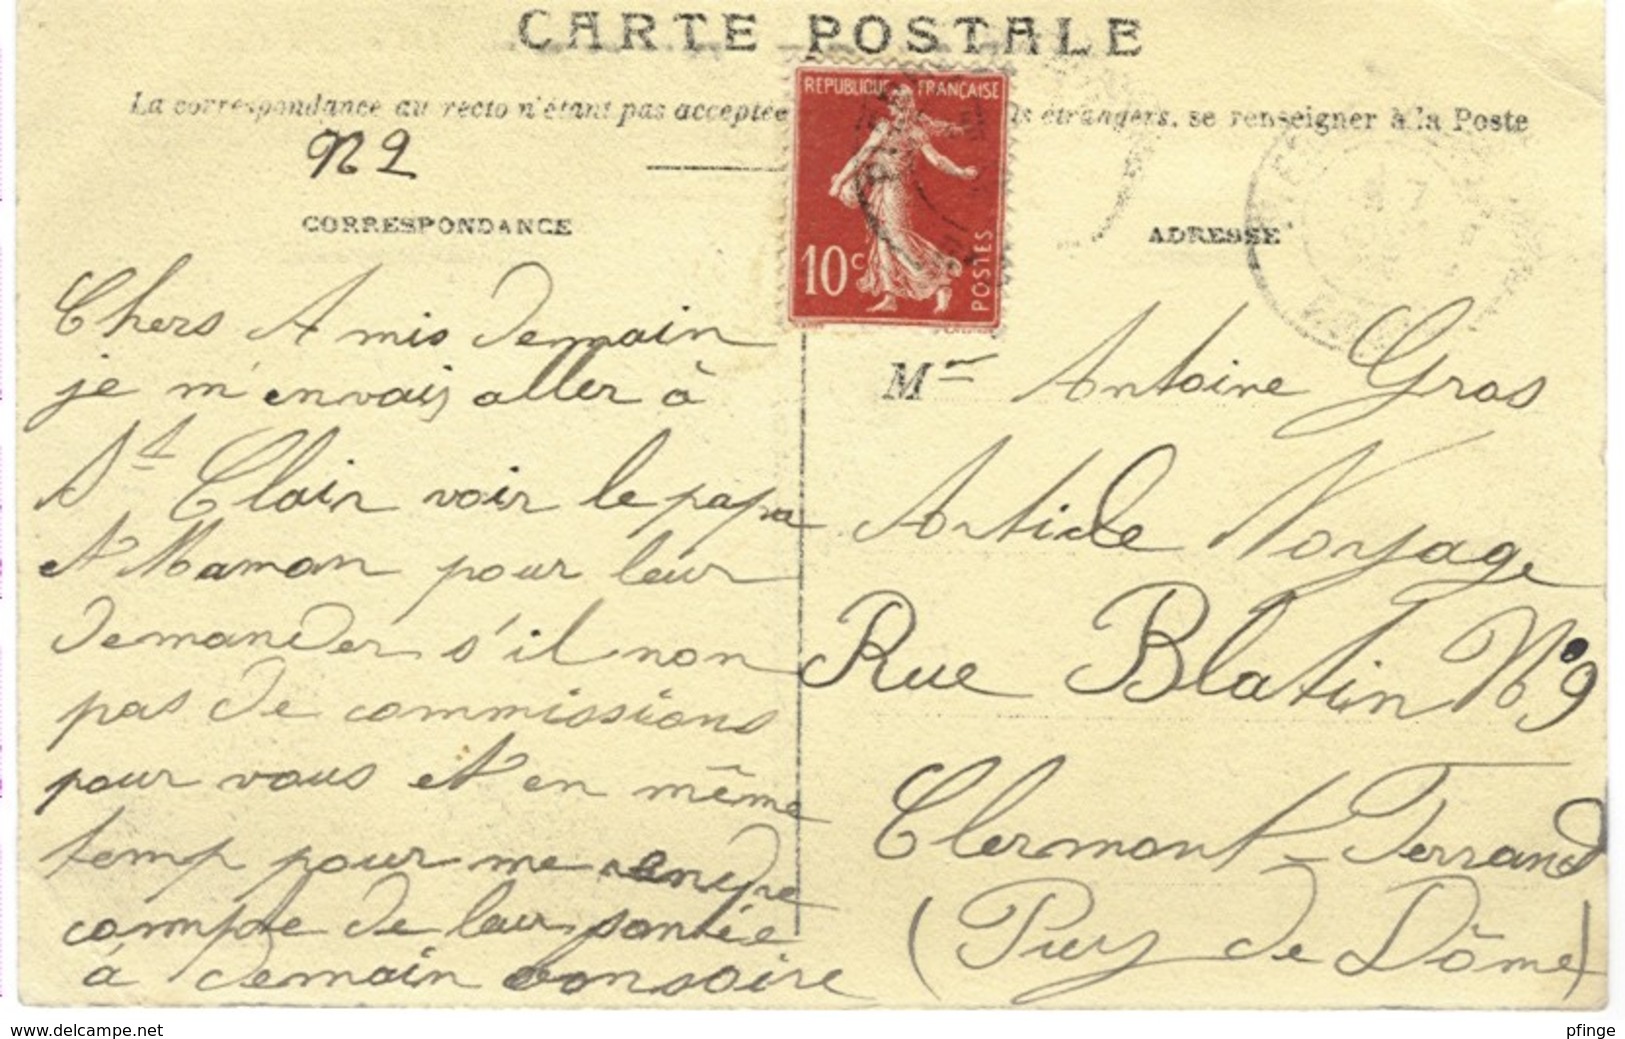 CARTE POSTALE
La correspondance au recto n'étant pas acceptée
étrangers, se renseigner à la Poste
N 2
CORRESPONDANCE
Chers Amis demain
je m'envais aller à
St Clair voir le papa
et Maman pour leur
demander s'il non
pas de commissions
pour vous et en même
temp pour me rendre
compte de leur santée
à demain bonsoire
REPUBLIQUE FRANÇAISE
10c
POSTES
ADRESSE
Mr Antoine Gros
Article Voyage
Rue Blatin No 9
Clermont-Ferrand
(Puy de Dôme)
www.delcampe.net
pfinge